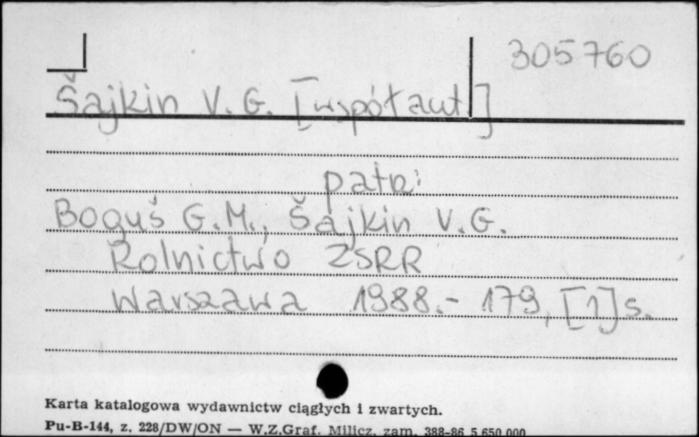 305760
Šajkin V. G. [współaut]
patrz:
Boguš G.M., Šajkin V.G.
Rolnictwo ZSRR
Warszawa 1988.- 179, [1] s.
Karta katalogowa wydawnictw ciągłych i zwartych.
Pu-B-144, z. 228/DW/ON — W.Z.Graf. Milicz, zam. 388-86 5.650.000